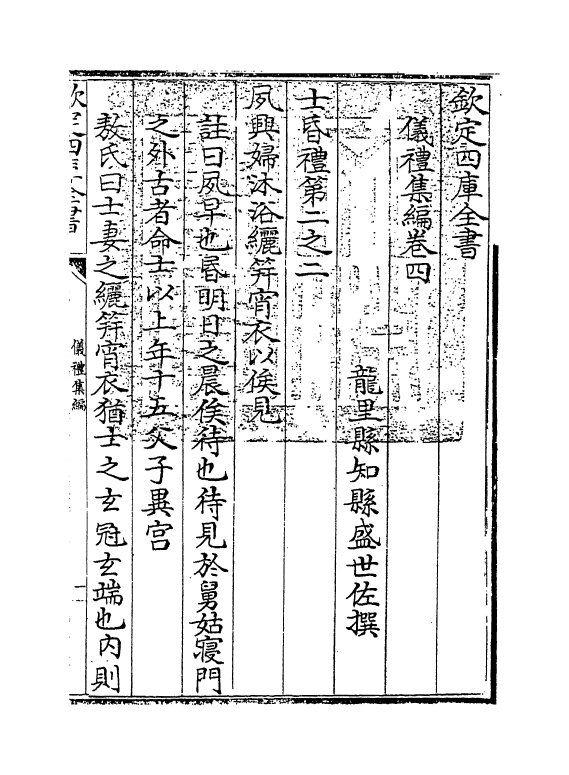 欽定四庫全書
儀禮集編卷四
龍里縣知縣盛世佐撰
士昏禮第二之二
夙興婦沐浴纚笄宵衣以俟見
註曰夙早也昏明日之晨俟待也待見於舅姑寢門
之外古者命士以上年十五父子異宮
敖氏曰士妻之纚笄宵衣猶士之玄冠玄端也內則
欽定四庫全書
儀禮集編
一